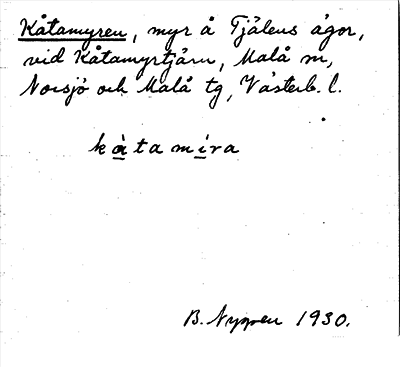 Kåtamyren, myr å Tjålens ägor,
vid Kåtamyrtjärn, Malå sn,
Norsjö och Malå tg, Västerb. l.
kȧtamira
B. Nyman 1930.